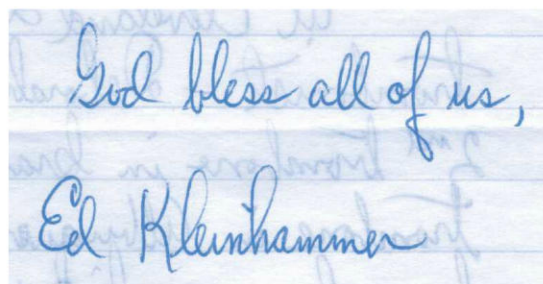 God bless all of us,
Ed Kleinhammer